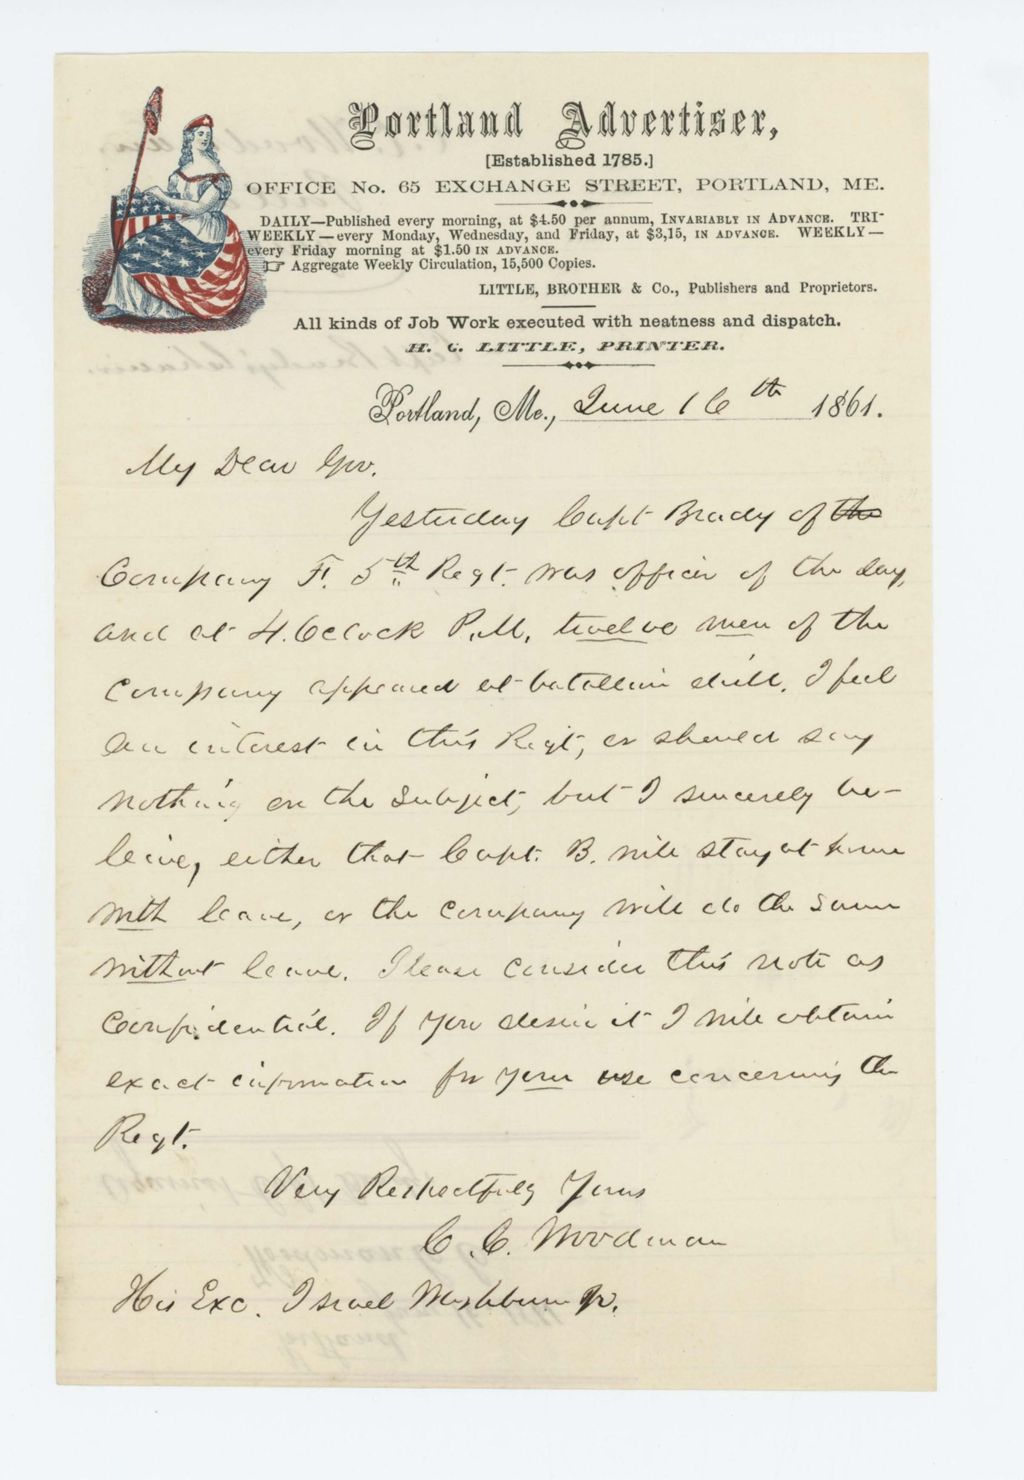 Portland Advertiser,
[Established 1785.]
OFFICE No. 65 EXCHANGE STREET, PORTLAND, ME.
DAILY—Published every morning, at $4.50 per annum, INVARIABLY IN ADVANCE. TRI-
WEEKLY—every Monday, Wednesday, and Friday, at $3,15, IN ADVANCE. WEEKLY—
every Friday morning at $1.50 IN ADVANCE.
☞ Aggregate Weekly Circulation, 15,500 Copies.
LITTLE, BROTHER & Co., Publishers and Proprietors.
All kinds of Job Work executed with neatness and dispatch.
H. C. LITTLE, PRINTER.
Portland, Me., June 16th 1861.
My Dear Gov.
Yesterday Capt Brady of the
Company F. 5th Regt. was officer of the day,
and at 4. Oclock P.M. twelve men of the
company appeared at batallion drill. I feel
an interest in this Regt, or should say
nothing on the subject, but I sincerely be-
leive, either that Capt. B. will stay at home
with leave, or the company will do the same
without leave. Please consider this note as
confidential. If you desire it I will obtain
exact information for your use concerning the
Regt.
Very Respectfully Yours
C. C. Woodman
His Exc. Israel Washburn Jr.